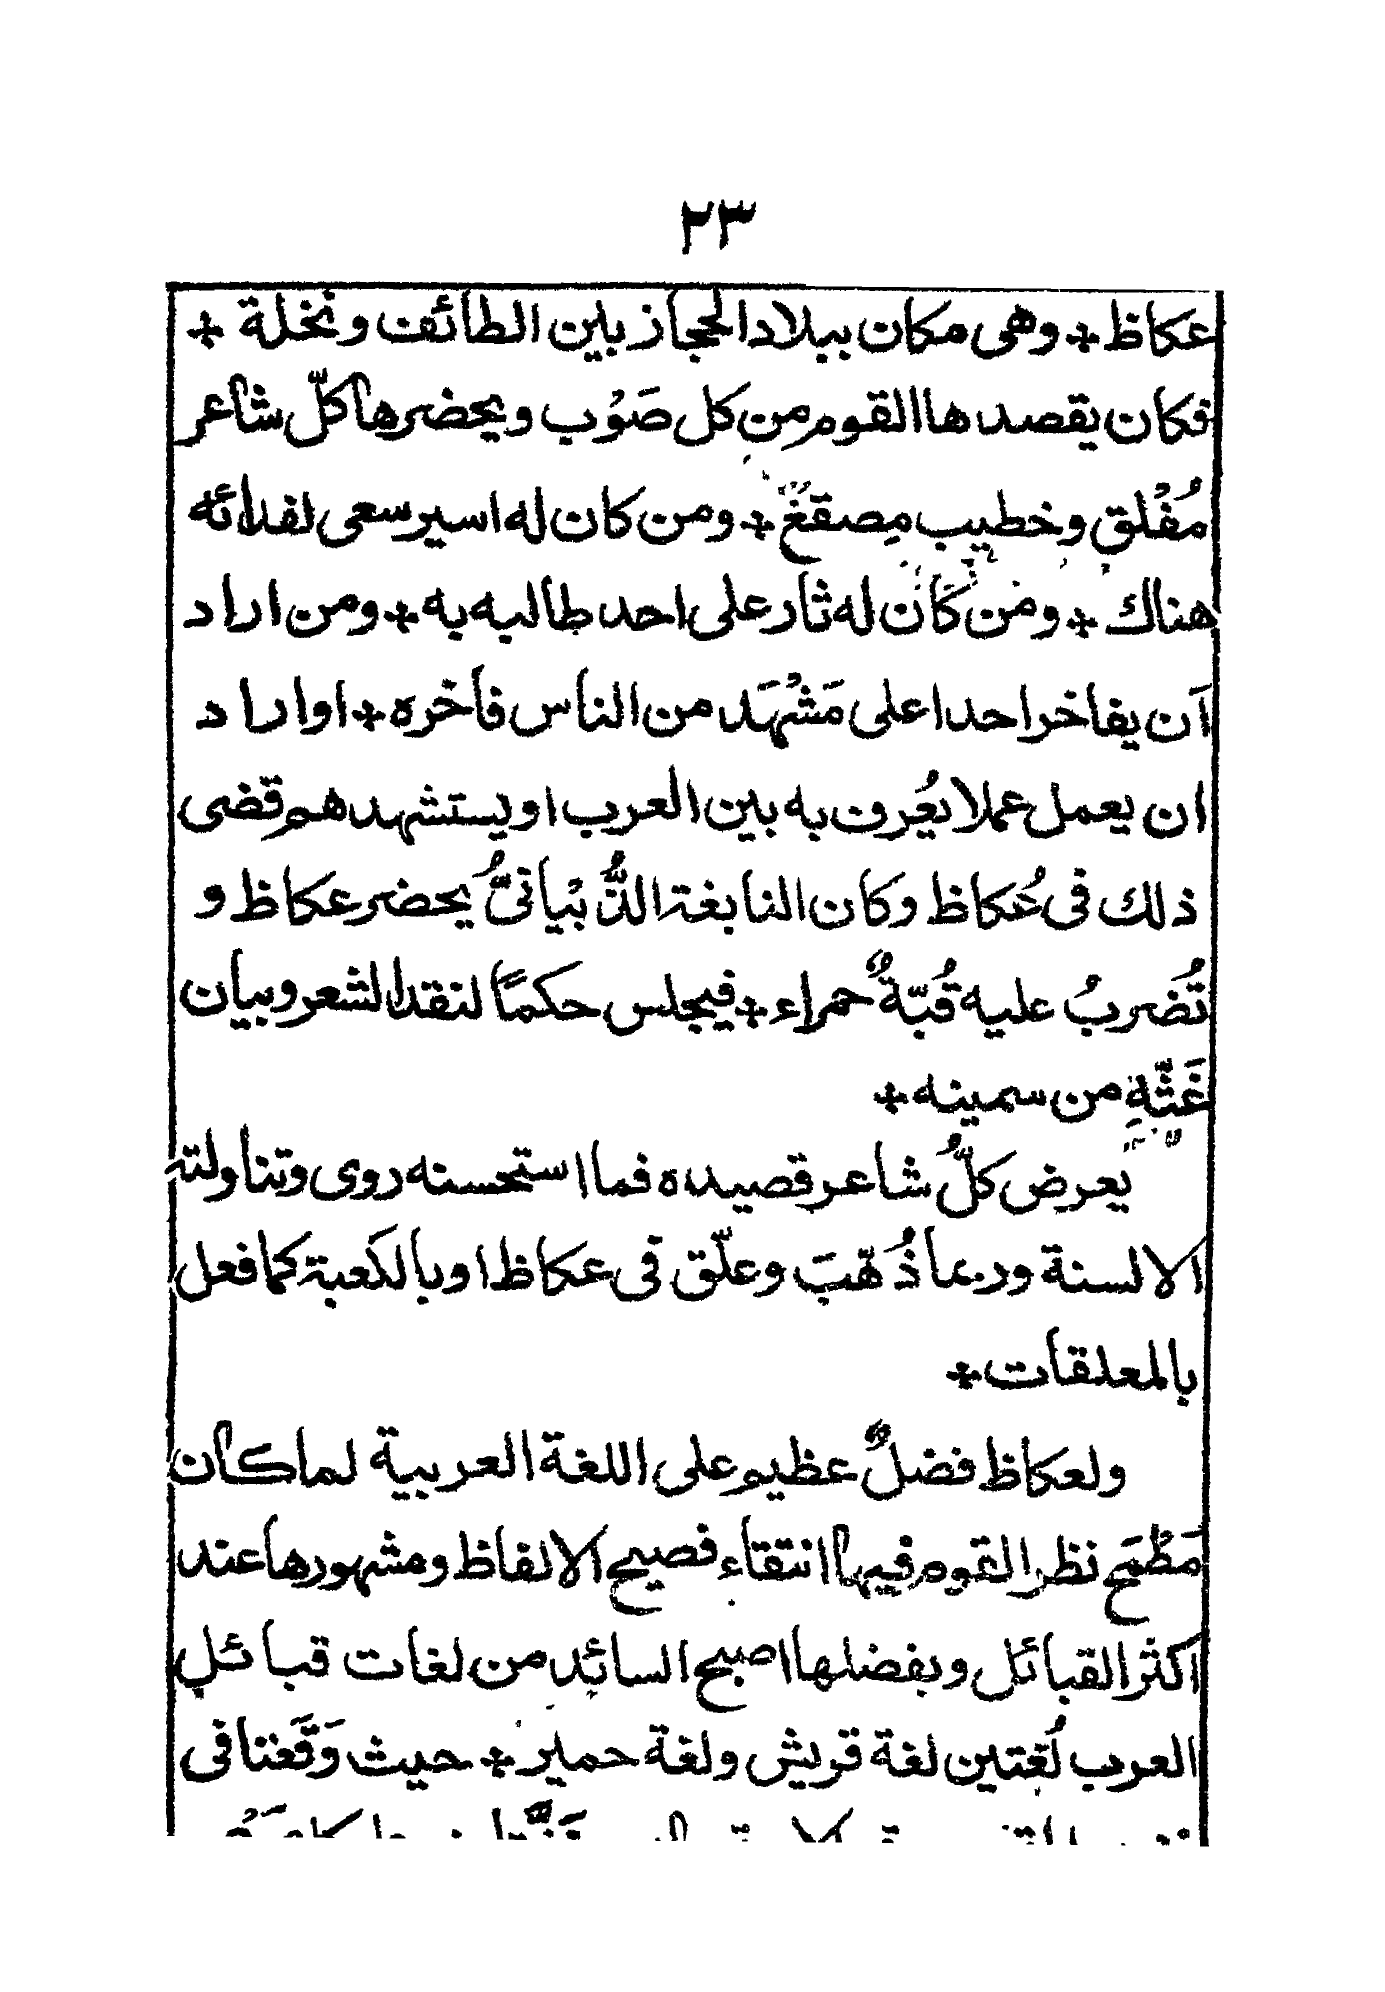 ٢٣
عكاظ * وهى مكان ببلاد الحجاز بين الطائف ونخلة *
فكان يقصدها القوم من كل صَوْب ويحضرها كلّ شاعر
مُفْلق وخطيب مِصقغ * ومن كان له اسير سعى لفدائه
هناك * ومن كان له ثار على احد طالبه به * ومن اراد
اَن يفاخر احدا على مَشْهَد من الناس فاخره * او اراد
ان يعمل عملا يُعْرف به بين العرب او يستشهدهم قضى
ذلك فى عُكاظ وكان النابغة الذُّبْيانىُّ يحضر عكاظ و
تُضربُ عليه قُبّةٌ حمراء * فيجلس حكماً لنقد الشعر وبيان
غَثّهِ من سمينه *
يعرض كلُّ شاعر قصيده فما استحسنه روى وتناولته
الالسنة وربما ذُهّبَ وعلّق فى عكاظ او بالكعبة كما فعل
بالمعلقات *
ولعكاظ فضلٌ عظيم على اللغة العربية لما كان
مَطْمَح نظر القوم فيها انتقاء فصيح الالفاظ ومشهورها عند
اكثر القبائل وبفضلها اصبح السائد من لغات قبائل
العرب لُغتين لغة قريش ولغة حمير * حيث وَقَفنا فى